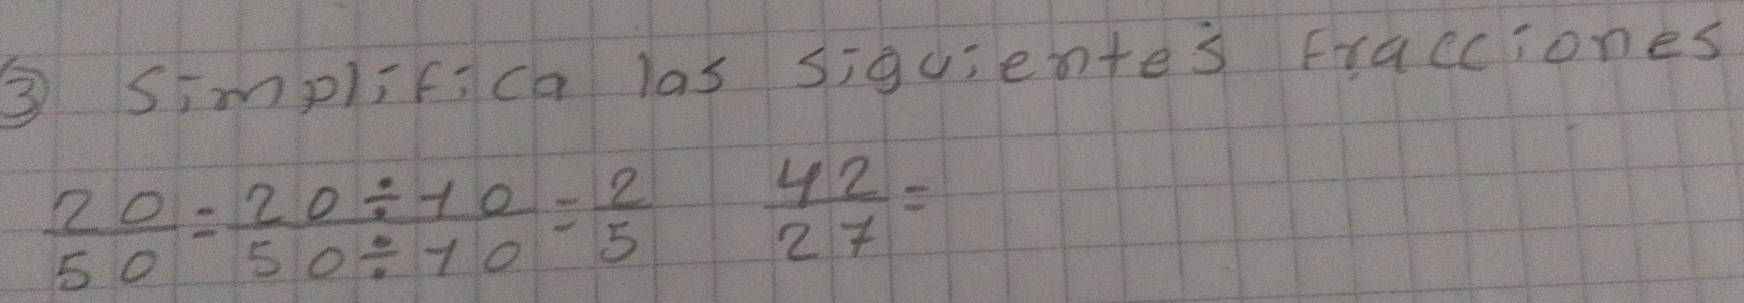 ③ Simplifica las siguientes fracciones
20/50 = 20÷10/50÷10 = 2/5 42/27 =